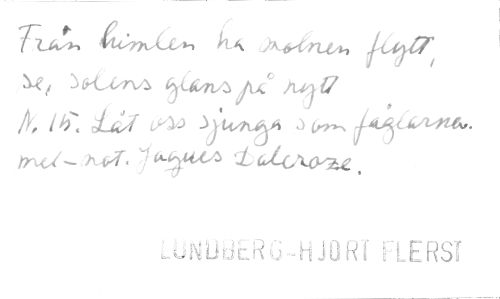 Från himlen ha molnen flytt,
se, solens glans på nytt
N. 15. Låt oss sjunga som fåglarna.
mel-not. Jaques Dalcroze.
LUNDBERG-HJORT FLERST